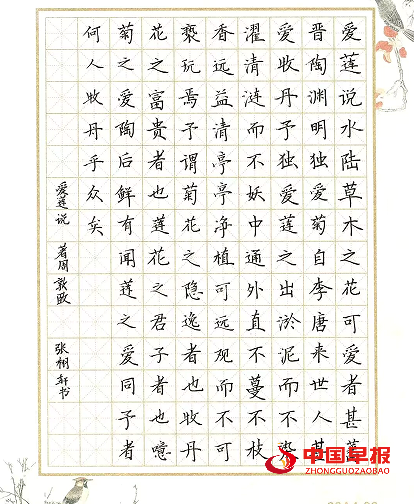 爱莲说水陆草木之花可爱者甚蕃
晋陶渊明独爱菊自李唐来世人甚
爱牡丹予独爱莲之出淤泥而不染
濯清涟而不妖中通外直不蔓不枝
香远益清亭亭净植可远观而不可
亵玩焉予谓菊花之隐逸者也牡丹
花之富贵者也莲花之君子者也噫
菊之爱陶后鲜有闻莲之爱同予者
何人牡丹乎众矣
爱莲说 著周敦颐 张栩轩书
中国早报
ZHONGGUOZAOBAO